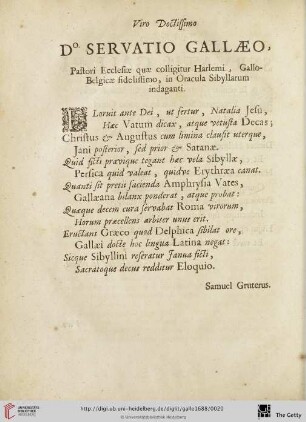 Viro Doctissimo
Dº. SERVATIO GALLÆO,
Pastori Ecclesiæ quæ colligitur Harlemi, Gallo-
Belgicæ fidelissimo, in Oracula Sibyllarum
indaganti.
FLoruit ante Dei, ut fertur, Natalia Jesu,
Hæc Vatum dicax, atque vetusta Decas;
Christus & Augustus cum limina clausit uterque,
Jani posterior, sed prior & Satanæ.
Quid ficti prævique tegant hæc vela Sibyllæ,
Persica quid valeat, quidve Erythræa canat.
Quanti sit pretii facienda Amphrysia Vates,
Gallæana bilanx ponderat, atque probat:
Quæque decem cura servabat Roma virorum,
Horum præcellens arbiter unus erit.
Eructant Græco quod Delphica sibilat ore,
Gallæi docte hoc lingua Latina negat:
Sicque Sibyllini reseratur Janua ficti,
Sacratoque decus redditur Eloquio.
Samuel Gruterus.
UNIVERSITÄTS-
BIBLIOTHEK
HEIDELBERG
http://digi.ub.uni-heidelberg.de/diglit/galle1688/0029
© Universitätsbibliothek Heidelberg
The Getty